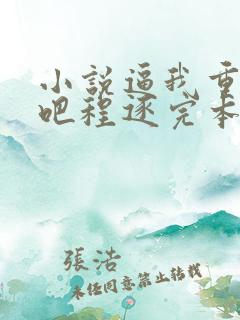 小說逼我重
吧程逐完本
張浩
未經同意禁止轉載